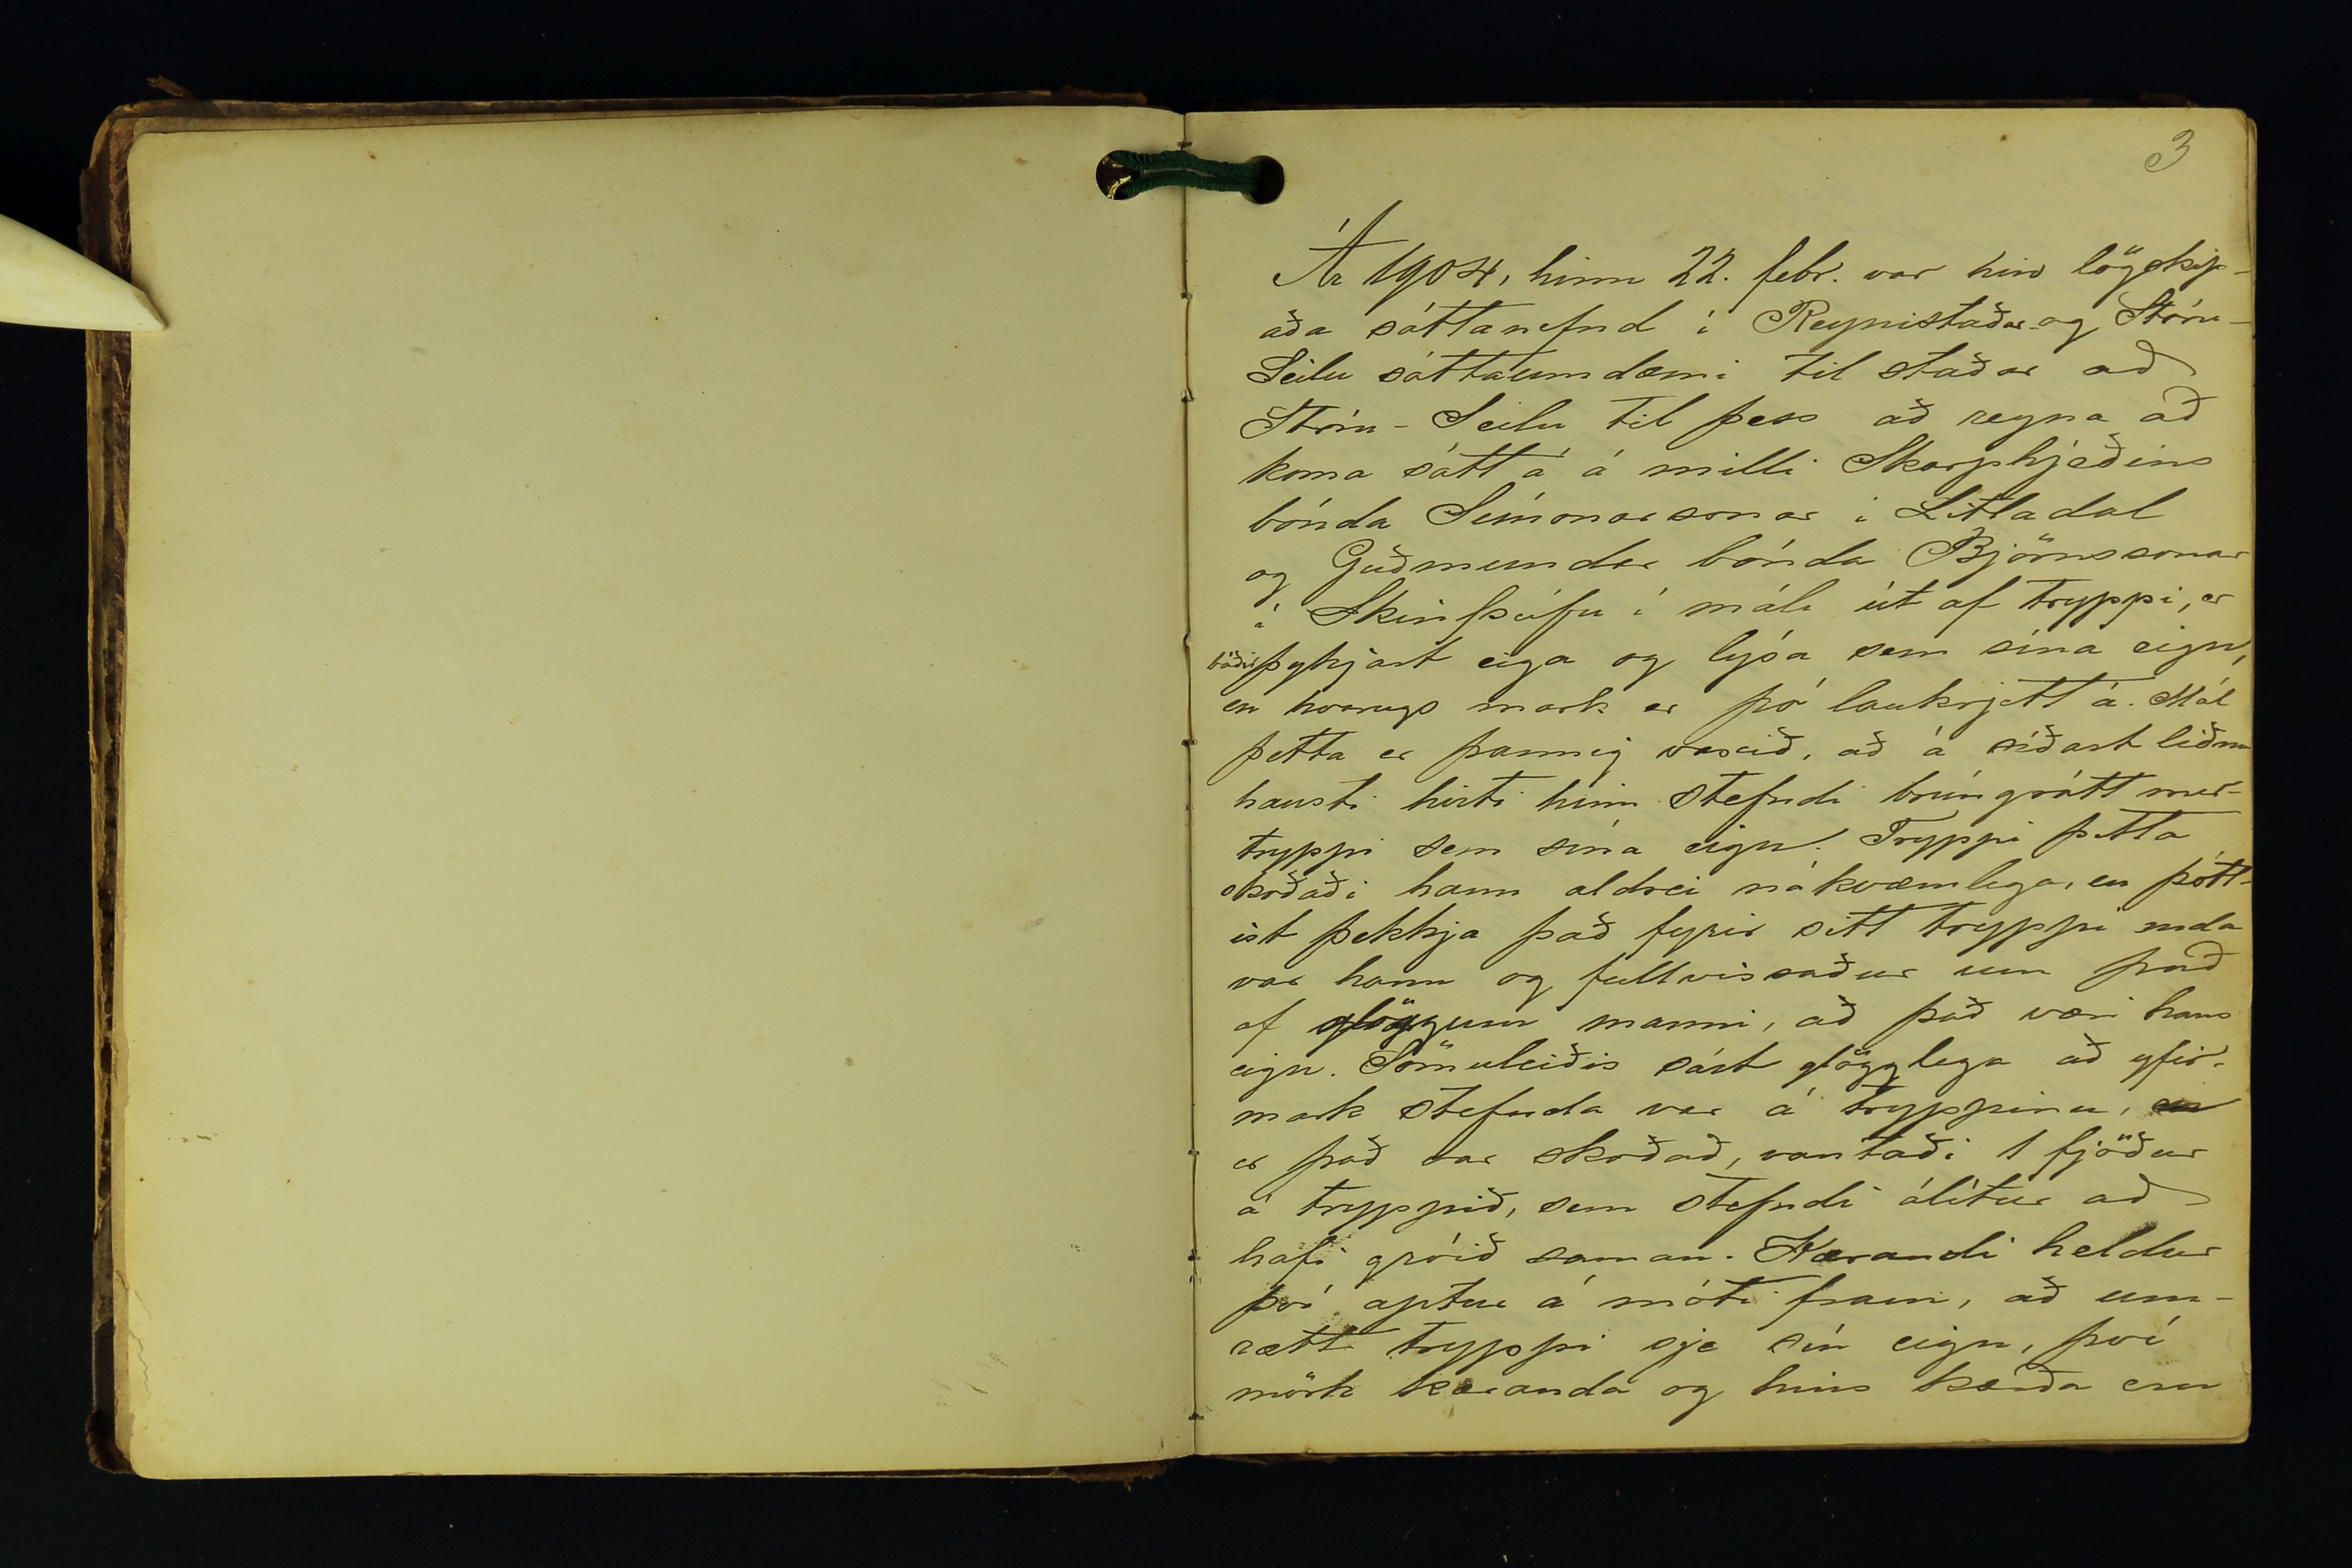 3
Ár 1904, hinn 22. febr. var hin lögskip-
aða sáttanefnd í Reynistaðar- og Stóru-
Seilu sáttaumdæmi til staðar að
Stóru-Seilu til þess að reyna að
koma sátt á á milli Skarphjeðins
bónda Símonarsonar í Litladal
og Guðmundar bónda Björnssonar
í Skinþúfu í máli út af tryppi, er
báðir þykjast eiga og lýsa sem sína eign,
en hvorugs mark er þó laukrjett á. Mál
þetta er þannig vaxið, að á síðast liðnu
hausti hirti hinn stefndi brúngrátt mer-
tryppi sem sína eign. Tryppi þetta
skoðaði hann aldrei nákvæmlega, en þótt-
ist þekkja það fyrir sitt tryppi enda
var hann og fullvissaður um það
af glöggum manni, að það væri hans
eign. Sömuleiðis sást glögglega að yfir-
mark stefnda var á tryppinu, en
er það var skoðað, vantaði 1 fjöður
á tryppið, sem stefndi álítur að
hafi gróið saman. Kærandi heldur
því aptur á móti fram, að um-
rætt tryppi sje sín eign, því
mörk kæranda og hins kærða eru